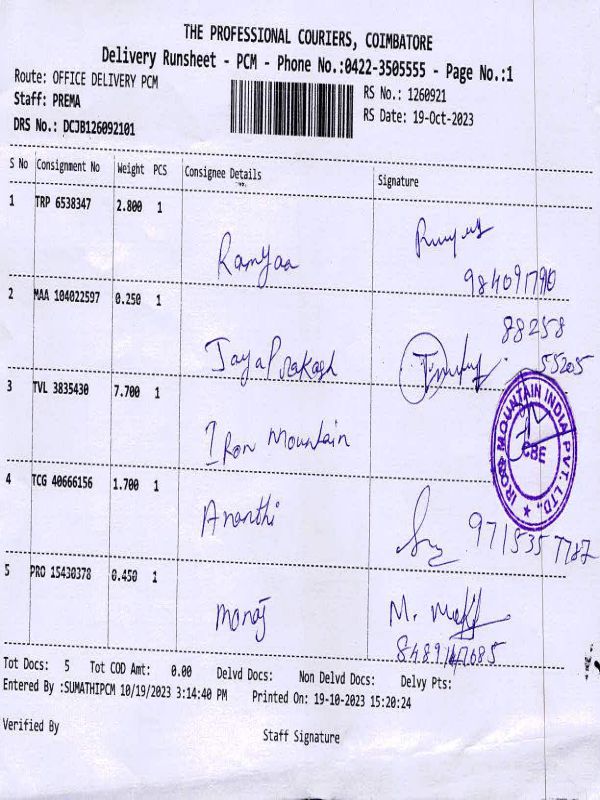 THE PROFESSIONAL COURIERS, COIMBATORE
Delivery Runsheet - PCM - Phone No.:0422-3505555 - Page No.:1
Route: OFFICE DELIVERY PCM
RS No.: 1260921
Staff: PREMA
RS Date: 19-Oct-2023
DRS No.: DCJB126092101
S No Consignment No Weight PCS Consignee Details Signature
1 TRP 6538347 2.800 1
Ramyaa
9840917910
2 MAA 104022597 0.250 1
88258
JayaPrakash
55205
3 TVL 3835430 7.700 1
Iron Mountain
IRON MOUNTAIN INDIA PVT. LTD., CBE
4 TCG 40666156 1.700 1
Ananthi
9715357787
5 PRO 15430378 0.450 1
Manoj
M.
Tot Docs: 5 Tot COD Amt: 0.00 Delvd Docs: Non Delvd Docs: Delvy Pts:
Entered By :SUMATHIPCM 10/19/2023 3:14:40 PM Printed On: 19-10-2023 15:20:24
Verified By
Staff Signature